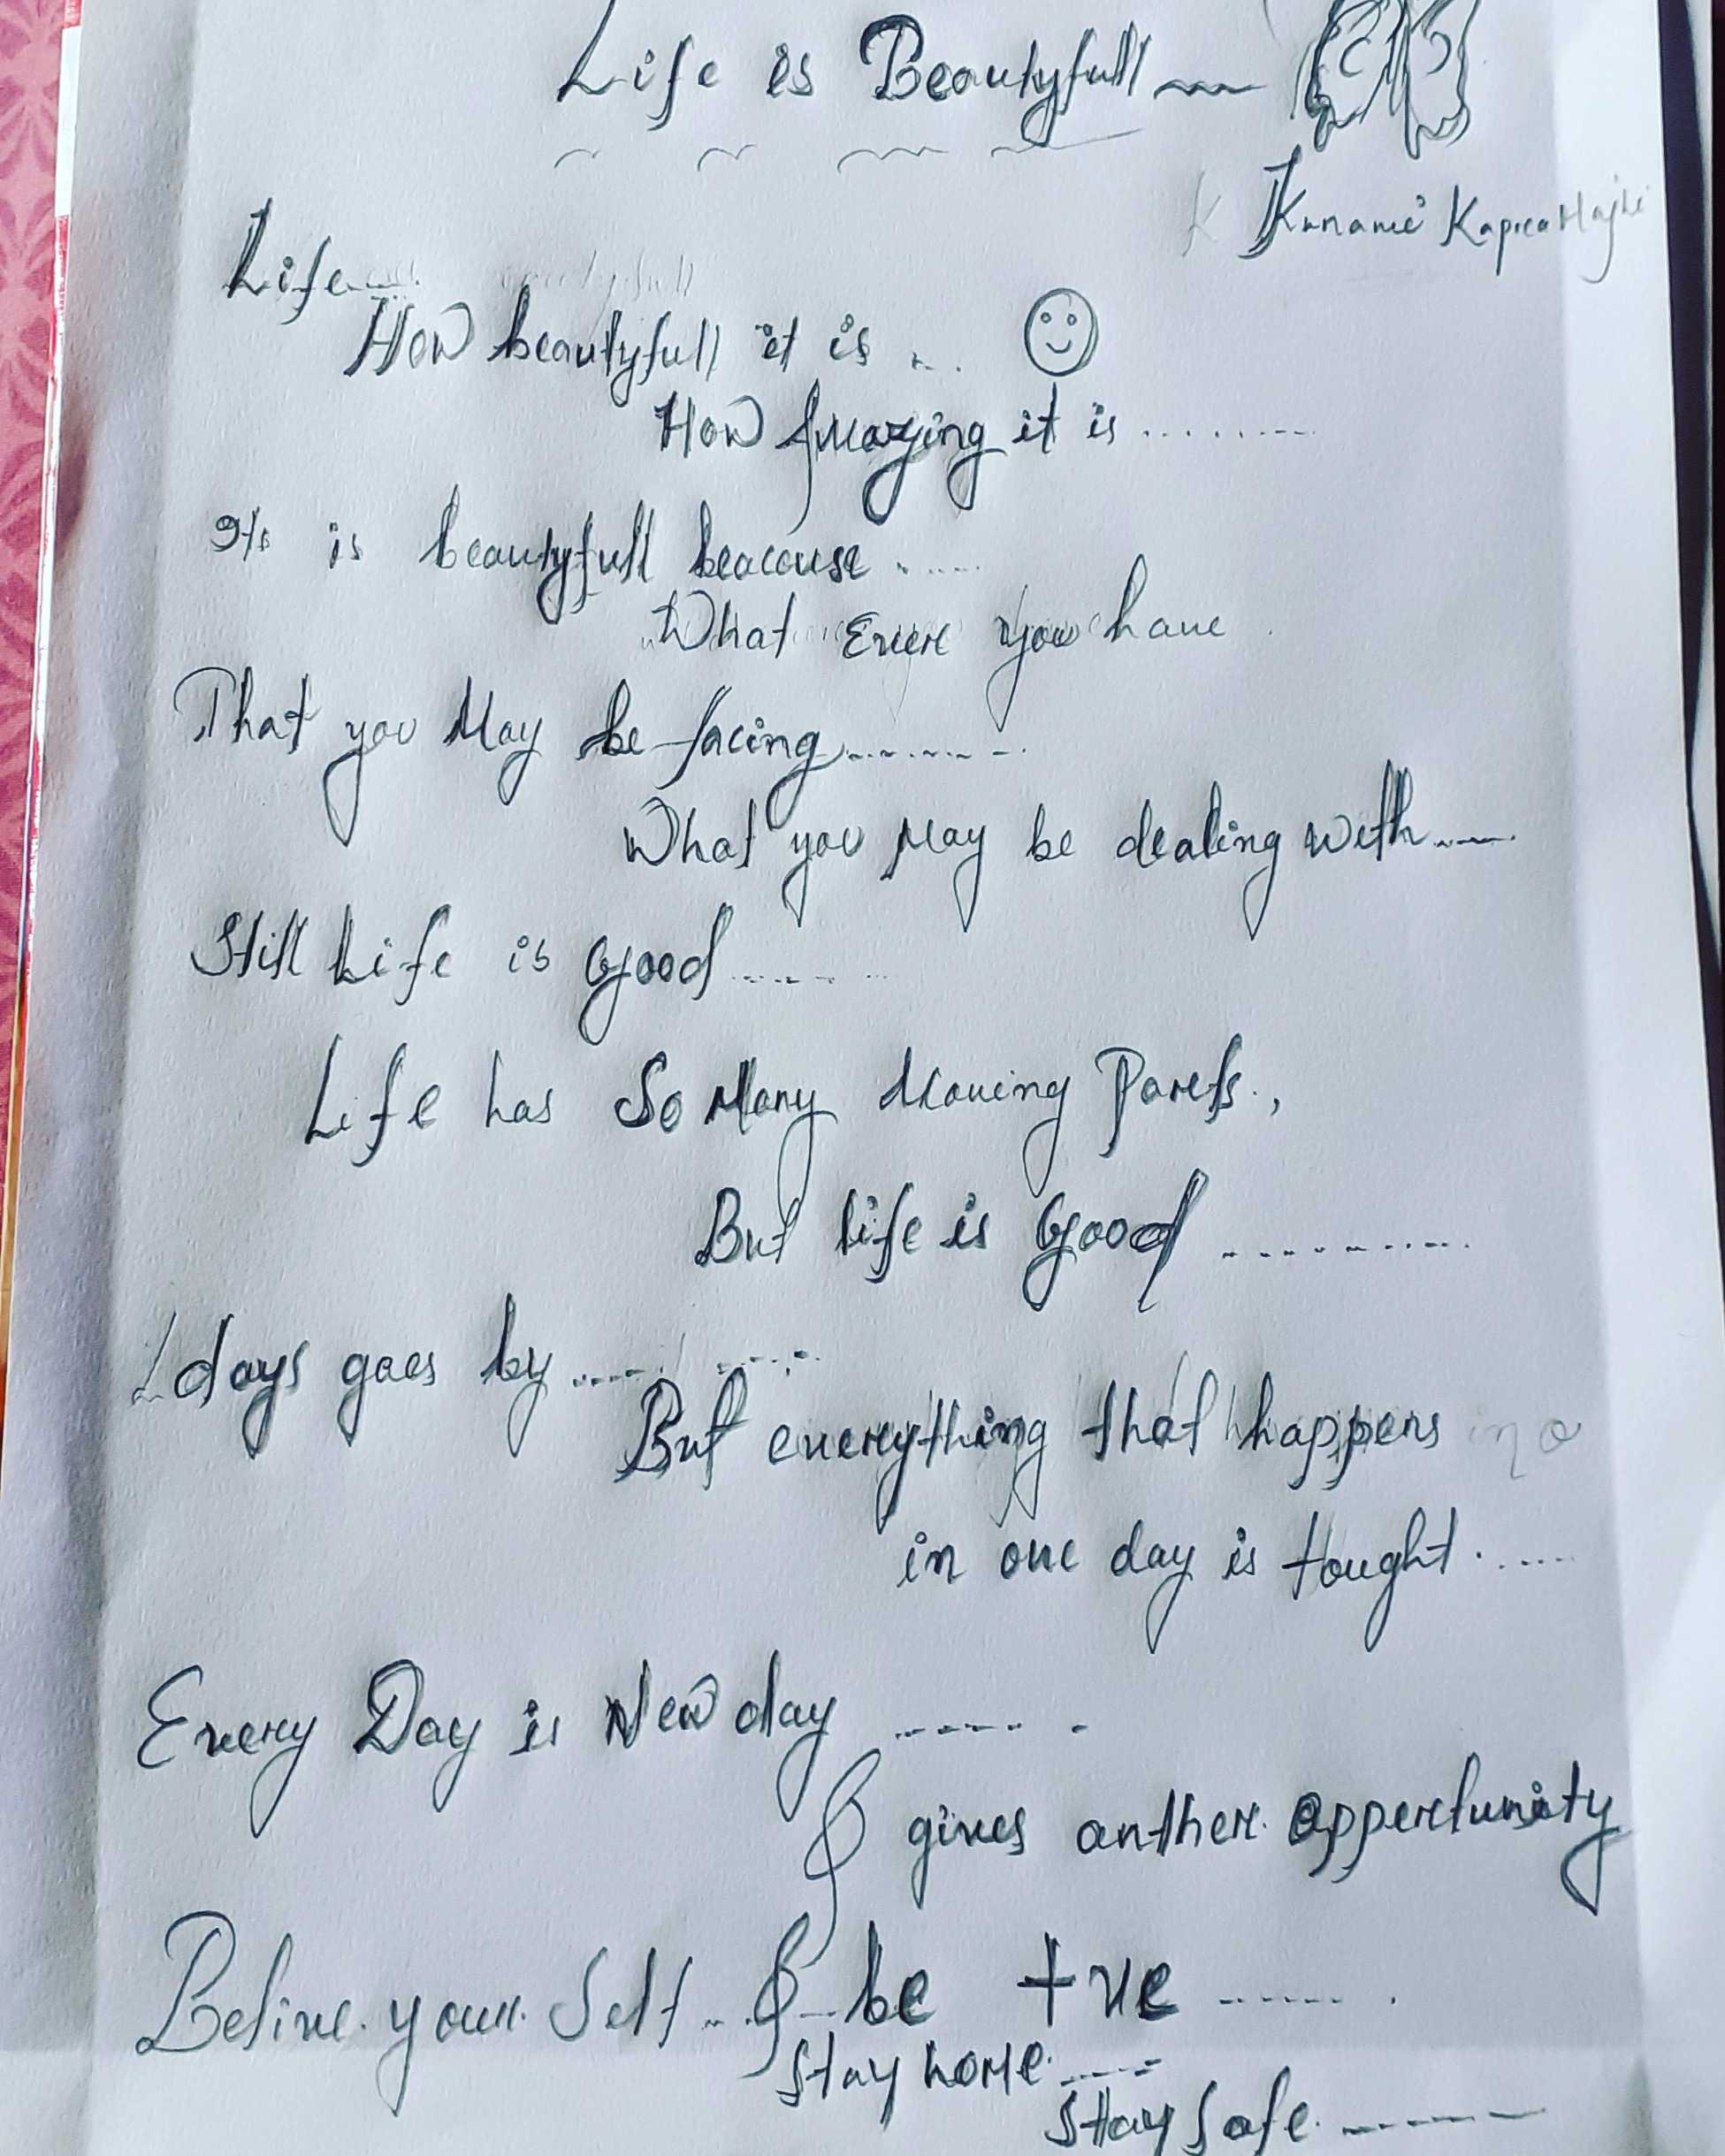 Life is Beautyfull
Life....
How beautyfull it is ...
How Amazing it is .........
Its is beautyfull beacause .....
What Ever you have
That you May be facing.........
What you May be dealing with.....
Still Life is Good......
Life has So Many Moving Parts.,
But life is Good ..........
days goes by.... ......
But everything that happens
in one day is tought......
Every Day is New day ...... -
& gives anther opportunity
Belive your Self ... & be +ve ...... .
Stay home.....
Stay Safe.......